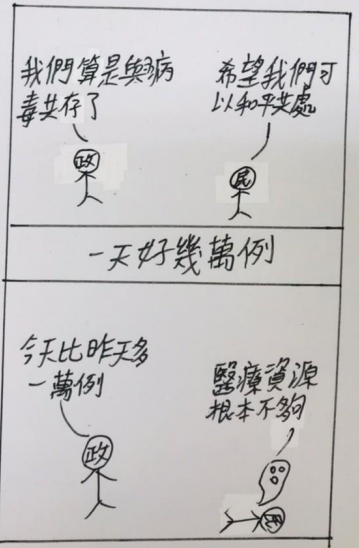 我們算是與病
毒共存了
希望我們可
以和平共處
政
民
一天好幾萬例
今天比昨天多
一萬例
醫療資源
根本不夠
政